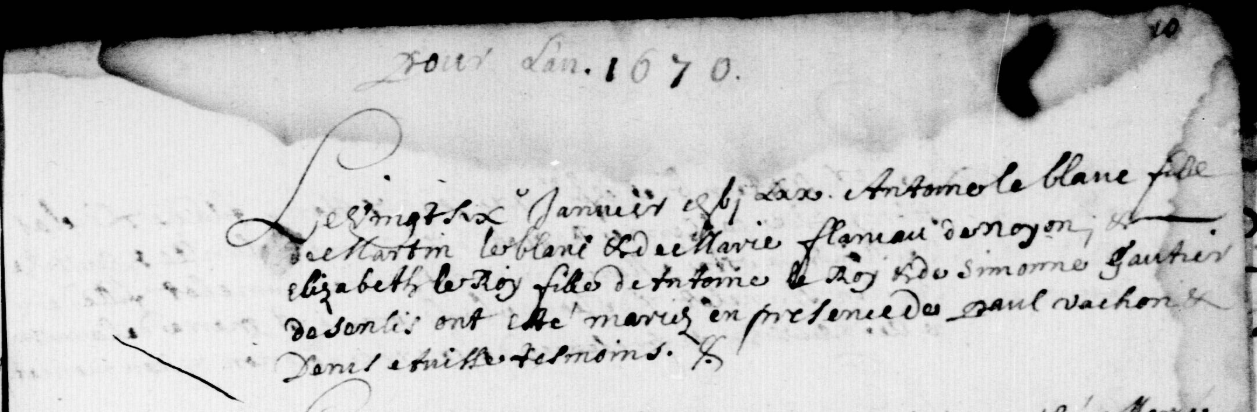 10
pour Lan. 1670.
Le vingt six Janvier lxx. Antoine le blanc fille
de Martin le blanc & de Marie flaneau de noyon, &
elizabeth le Roy fille de Antoine le Roy & de simonne gautier
de senlis ont esté mariez en presence de paul vachon &
Denis tesmoins. &